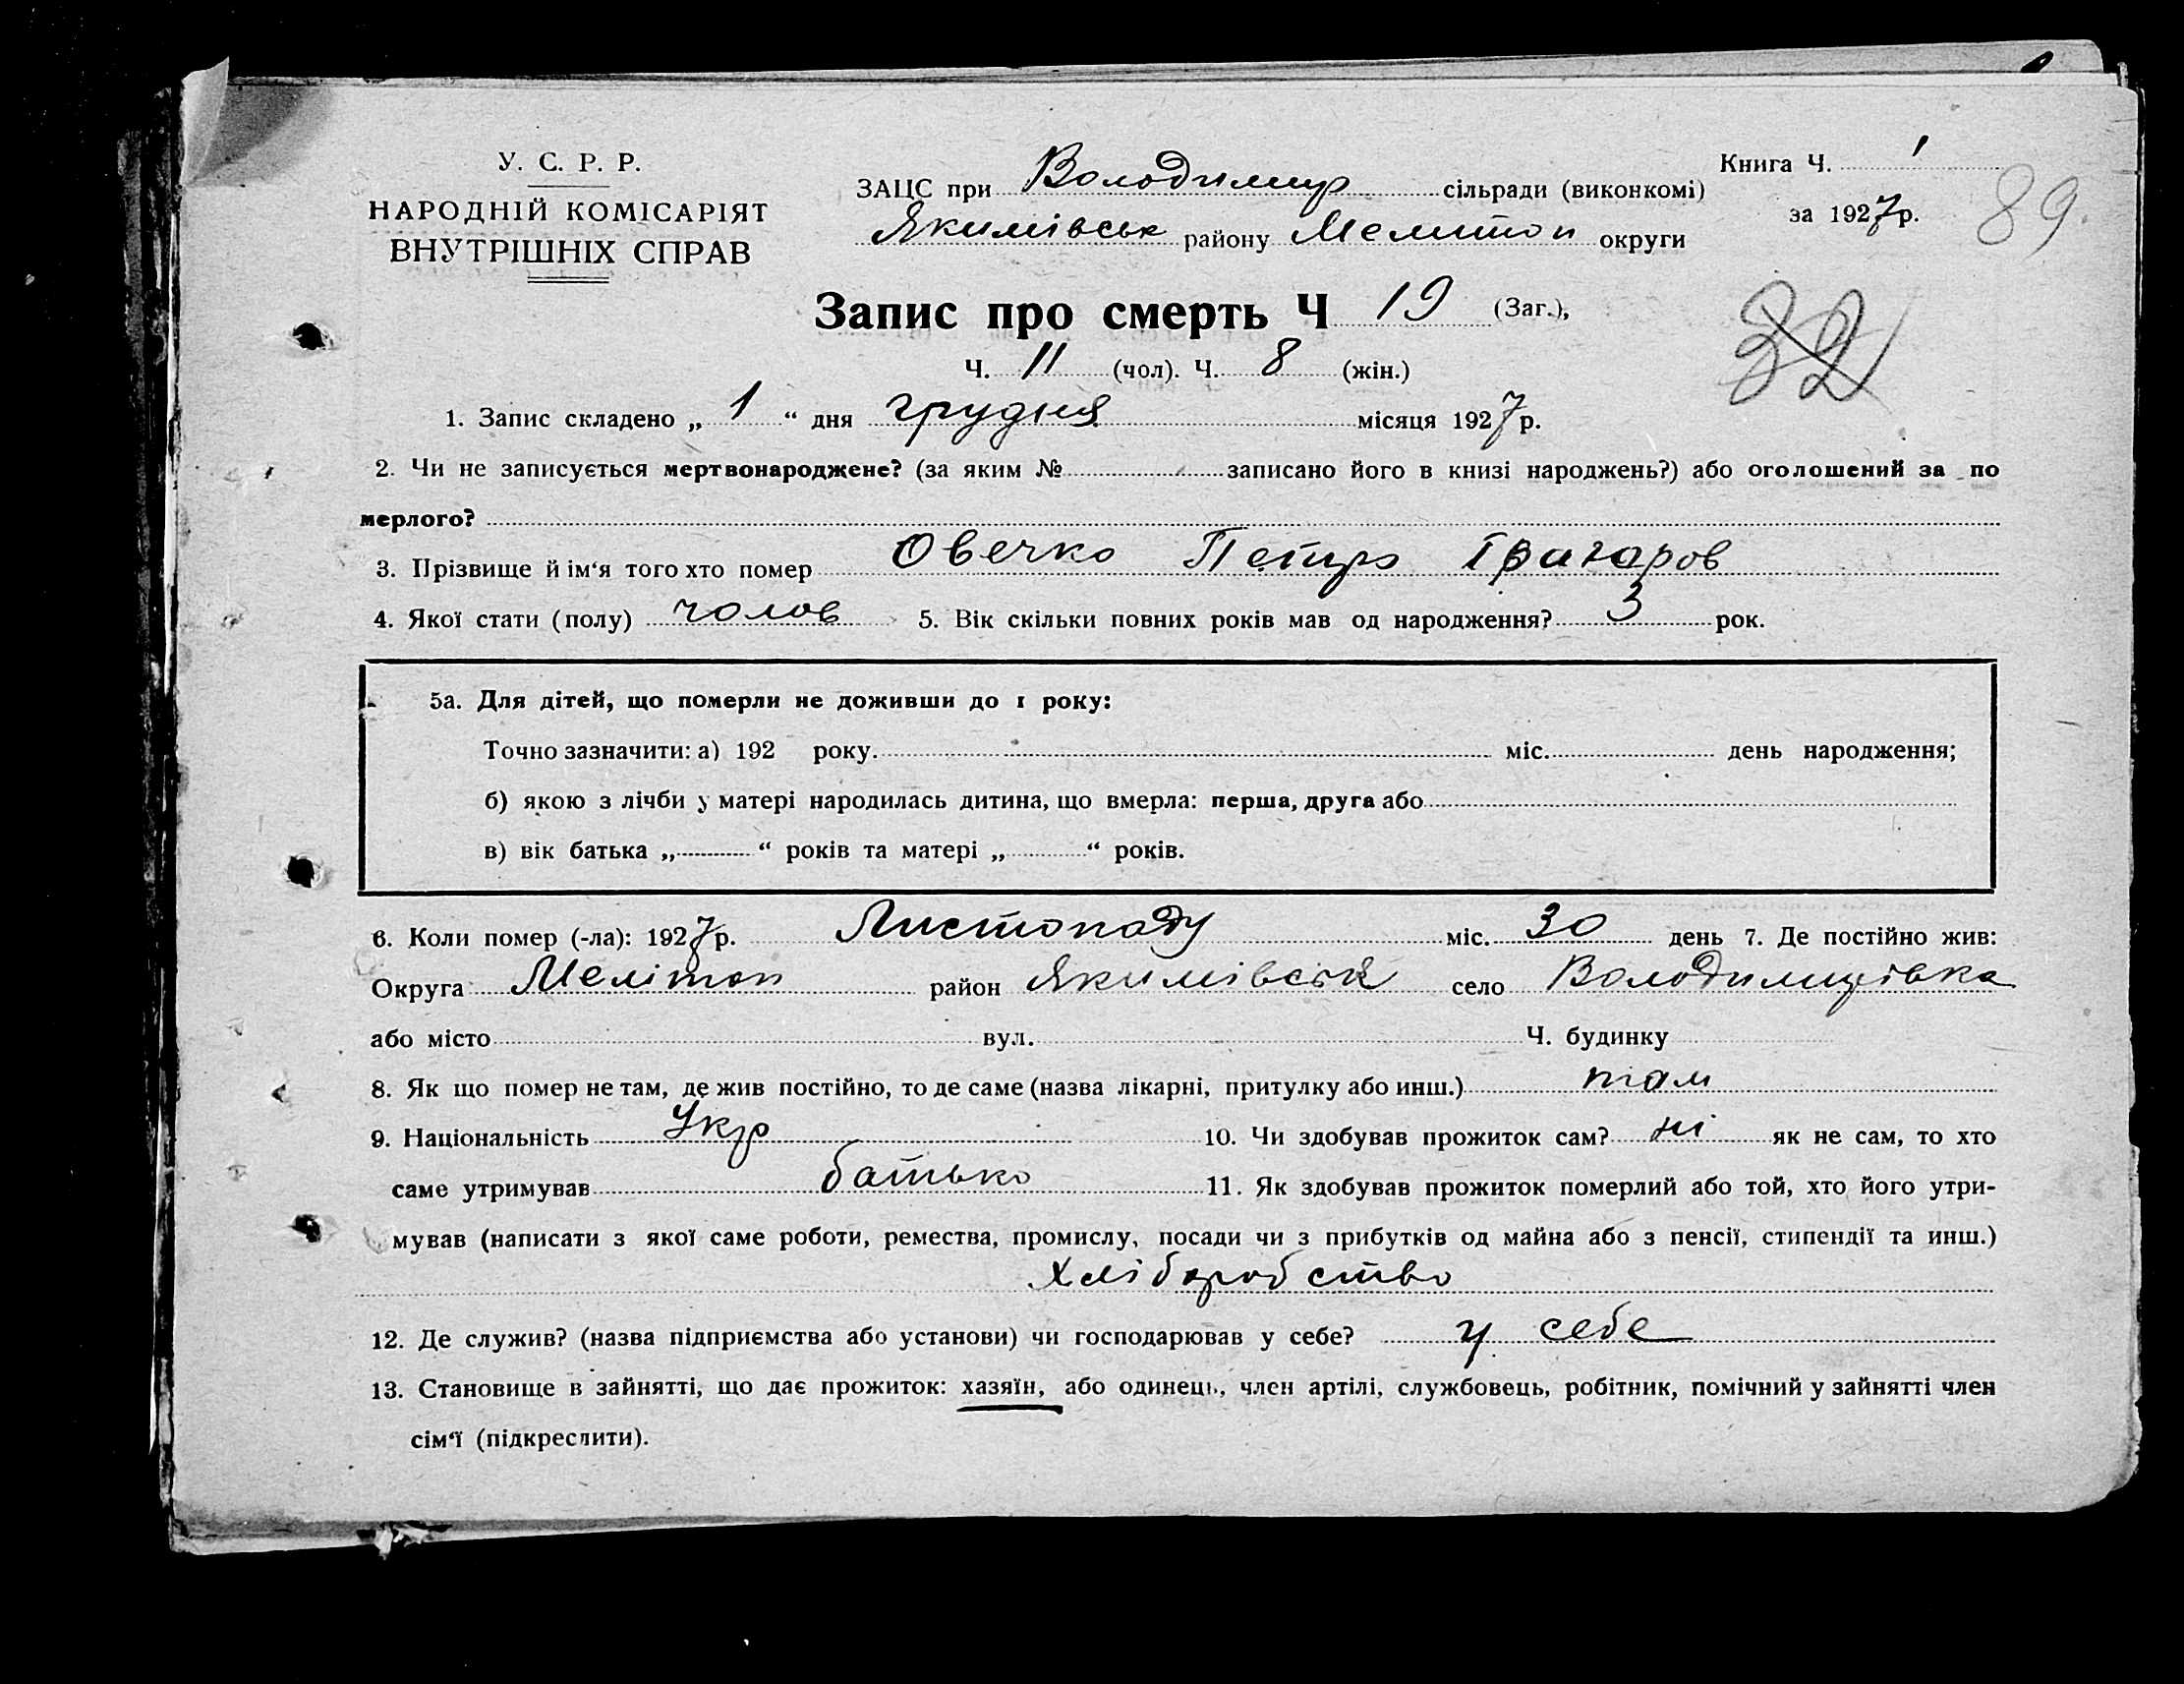 У. С. Р. Р.
НАРОДНІЙ КОМІСАРІЯТ
ВНУТРІШНІХ СПРАВ
Книга Ч. 1
за 1927 р.
89.
ЗАЦС при Володимир сільради (виконкомі)
Якимівськ району Мелитоп округи
Запис про смерть Ч 19 (Заг.),
32
Ч. 11 (чол). Ч. 8 (жін.)
1. Запис складено „ 1 “ дня грудня місяця 1927 р.
2. Чи не записується мертвонароджене? (за яким № записано його в книзі народжень?) або оголошений за по
мерлого?
3. Прізвище й ім‘я того хто помер Овечко Петро Григоров
4. Якої стати (полу) чолов 5. Вік скільки повних років мав од народження? 3 рок.
5а. Для дітей, що померли не доживши до 1 року:
Точно зазначити: а) 192 року. міс. день народження;
б) якою з лічби у матері народилась дитина, що вмерла: перша, друга або
в) вік батька „ “ років та матері „ “ років.
6. Коли помер (-ла): 1927 р. Листопаду міс. 30 день 7. Де постійно жив:
Округа Мелітоп район Якимівськ село Володимирівка
або місто вул. Ч. будинку
8. Як що помер не там, де жив постійно, то де саме (назва лікарні, притулку або инш.) там
9. Національність Укр 10. Чи здобував прожиток сам? ні як не сам, то хто
саме утримував батько 11. Як здобував прожиток померлий або той, хто його утри-
мував (написати з якої саме роботи, ремества, промислу, посади чи з прибутків од майна або з пенсії, стипендії та инш.)
Хліборобство
12. Де служив? (назва підприємства або установи) чи господарював у себе? у себе
13. Становище в зайнятті, що дає прожиток: хазяїн, або одинець, член артілі, службовець, робітник, помічний у зайнятті член
сім‘ї (підкреслити).